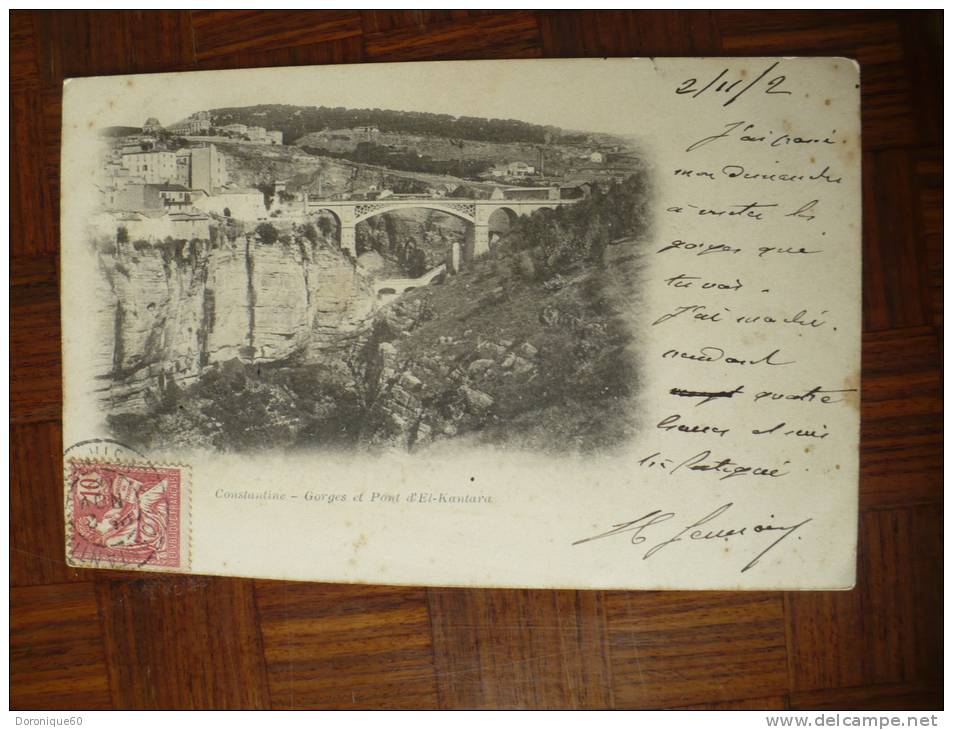 2/11/2
J'ai passé
mon Dimanche
à visiter les
gorges que
tu vois.
J'ai marché
pendant
quatre
heures et suis
très fatigué
Constantine - Gorges et Pont d'El-Kantara
10
REPUBLIQUE FRANÇAISE
Doronique60
www.delcampe.net